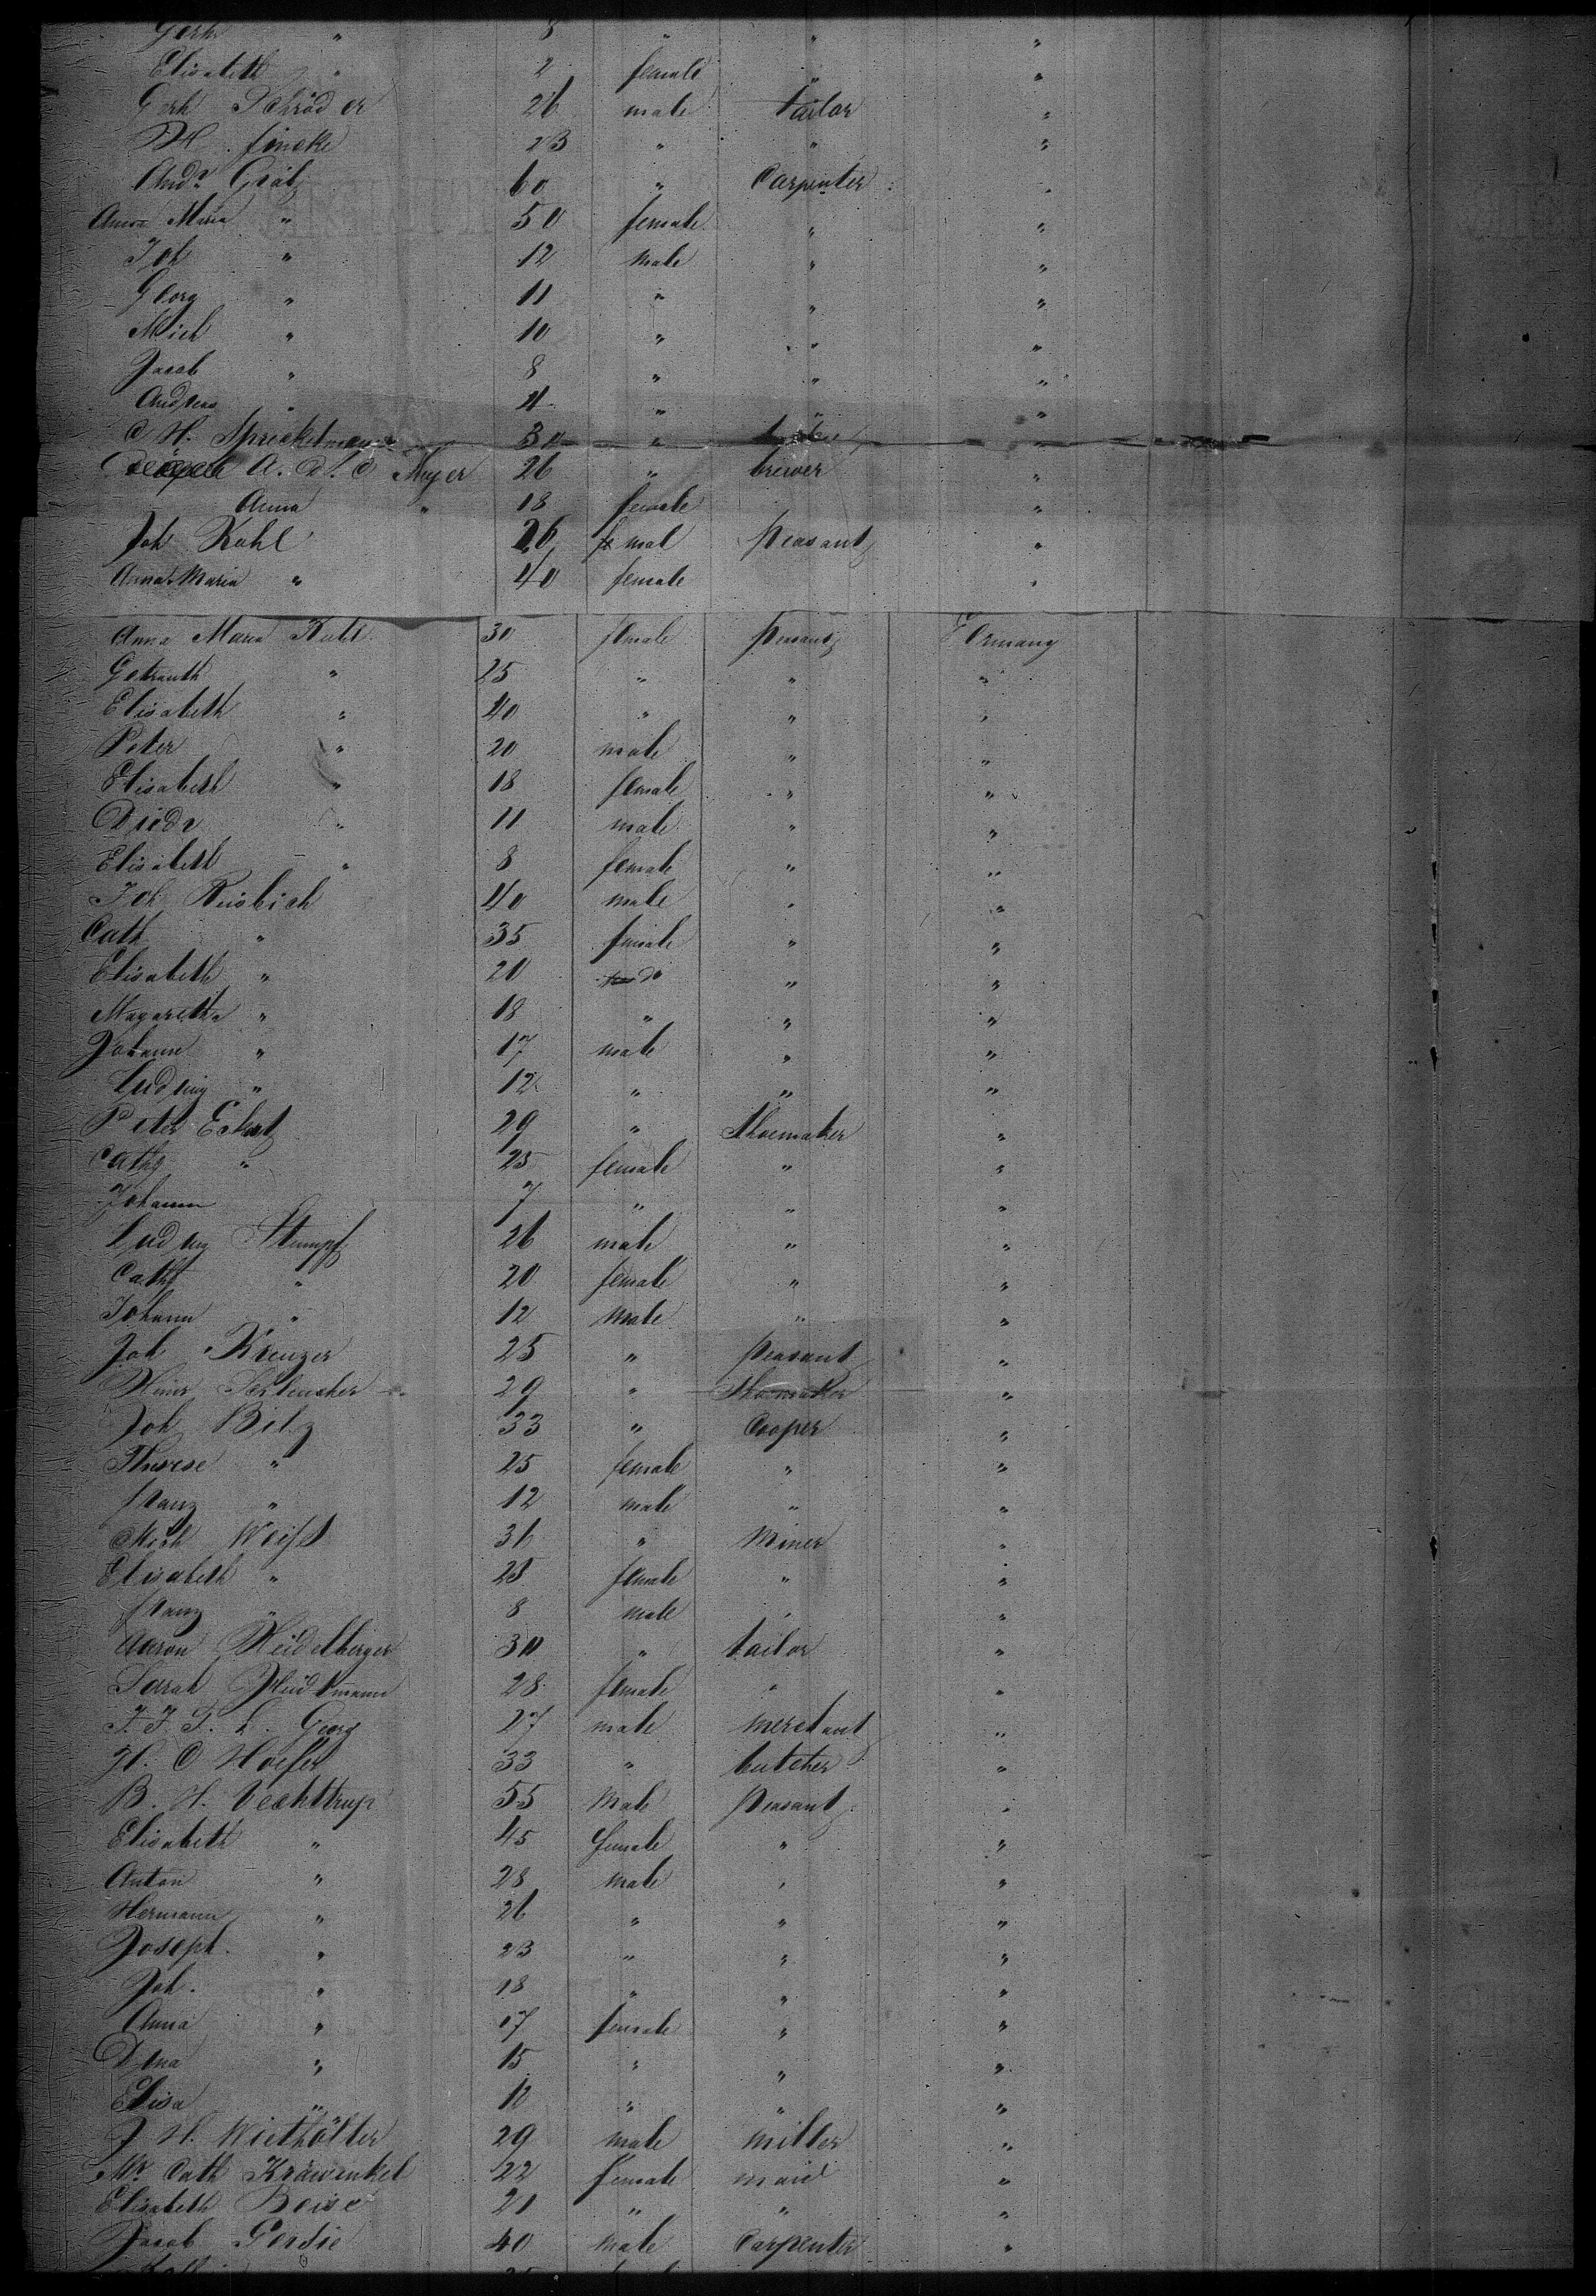 Gerh " 8 " " "
Elisabeth " 2 female " "
Gerh Schröder 26 male tailor "
H. fincke 23 " " "
Andr Grätz 60 " Carpenter "
Anna Maria " 50 female " "
Joh " 12 male " "
Georg " 11 " " "
Mich " 10 " " "
Jacob " 8 " " "
Andreas " 4 " " "
C H. Spreckelmann 30 " "
A. d. C Meyer 26 " brewer "
Anna " 18 female "
Joh Kuhl 26 mal peasant "
Anna Maria " 40 female "
Anna Maria Kuhl 30 female peasant Germany
Getrauth " 25 " " "
Elisabeth " 40 " " "
Peter " 20 male " "
Elisabeth " 18 female " "
Diedr " 11 male " "
Elisabeth " 8 female " "
Joh Reisbich 40 male " "
Cath " 35 female " "
Elisabeth " 20 do " "
Magaretha " 18 " " "
Johann " 17 male " "
Ludwig " 12 " " "
Peter Eckert 29 " Shoemaker "
Cath " 25 female " "
Johann 7 " " "
Ludwig Stumpf 26 male " "
Cath " 20 female " "
Johann " 12 male " "
Joh Kreuzer 25 " peasant "
Heinr 29 " Shoemaker "
Joh Bilz 33 " Cooper "
Therese " 25 female " "
franz " 12 male " "
Mich Weifs 36 " Miner "
Elisabeth " 28 female " "
franz " 8 male " "
Aaron Heidelberger 30 " tailor "
Sarah 28 female " "
J. J. S. L. Georg 27 male merchant "
H. C Hoefer 33 " butcher "
B. H. Vechttrup 55 Male peasant "
Elisabeth " 45 female " "
Anton " 28 male " "
Hermann " 26 " " "
Joseph " 23 " " "
Joh. " 18 " " "
Anna " 17 female " "
Dina " 15 " " "
Elisa " 12 " " "
J H. Wiethölter 29 male miller "
Mr Cath Kräwinkel 22 female maid "
Elisabeth Boise 21 " " "
Jacob Gerdie 40 male Carpenter "